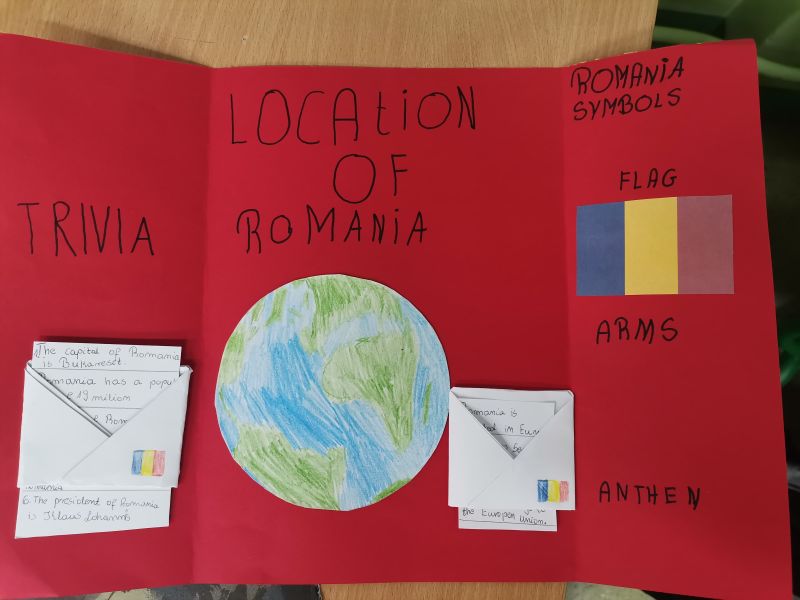 TRIVIA
1) The capital of Romania
is Bukareset.
Romania has a popu
19 milion
Rom
6. The president of Romania
is Klaus Iohannis
LOCAtiON
OF
ROMANiA
Romania is
in Eur
the Europen
Union.
ROMANIA
SYMBOLS
FLAG
ARMS
ANTHEN